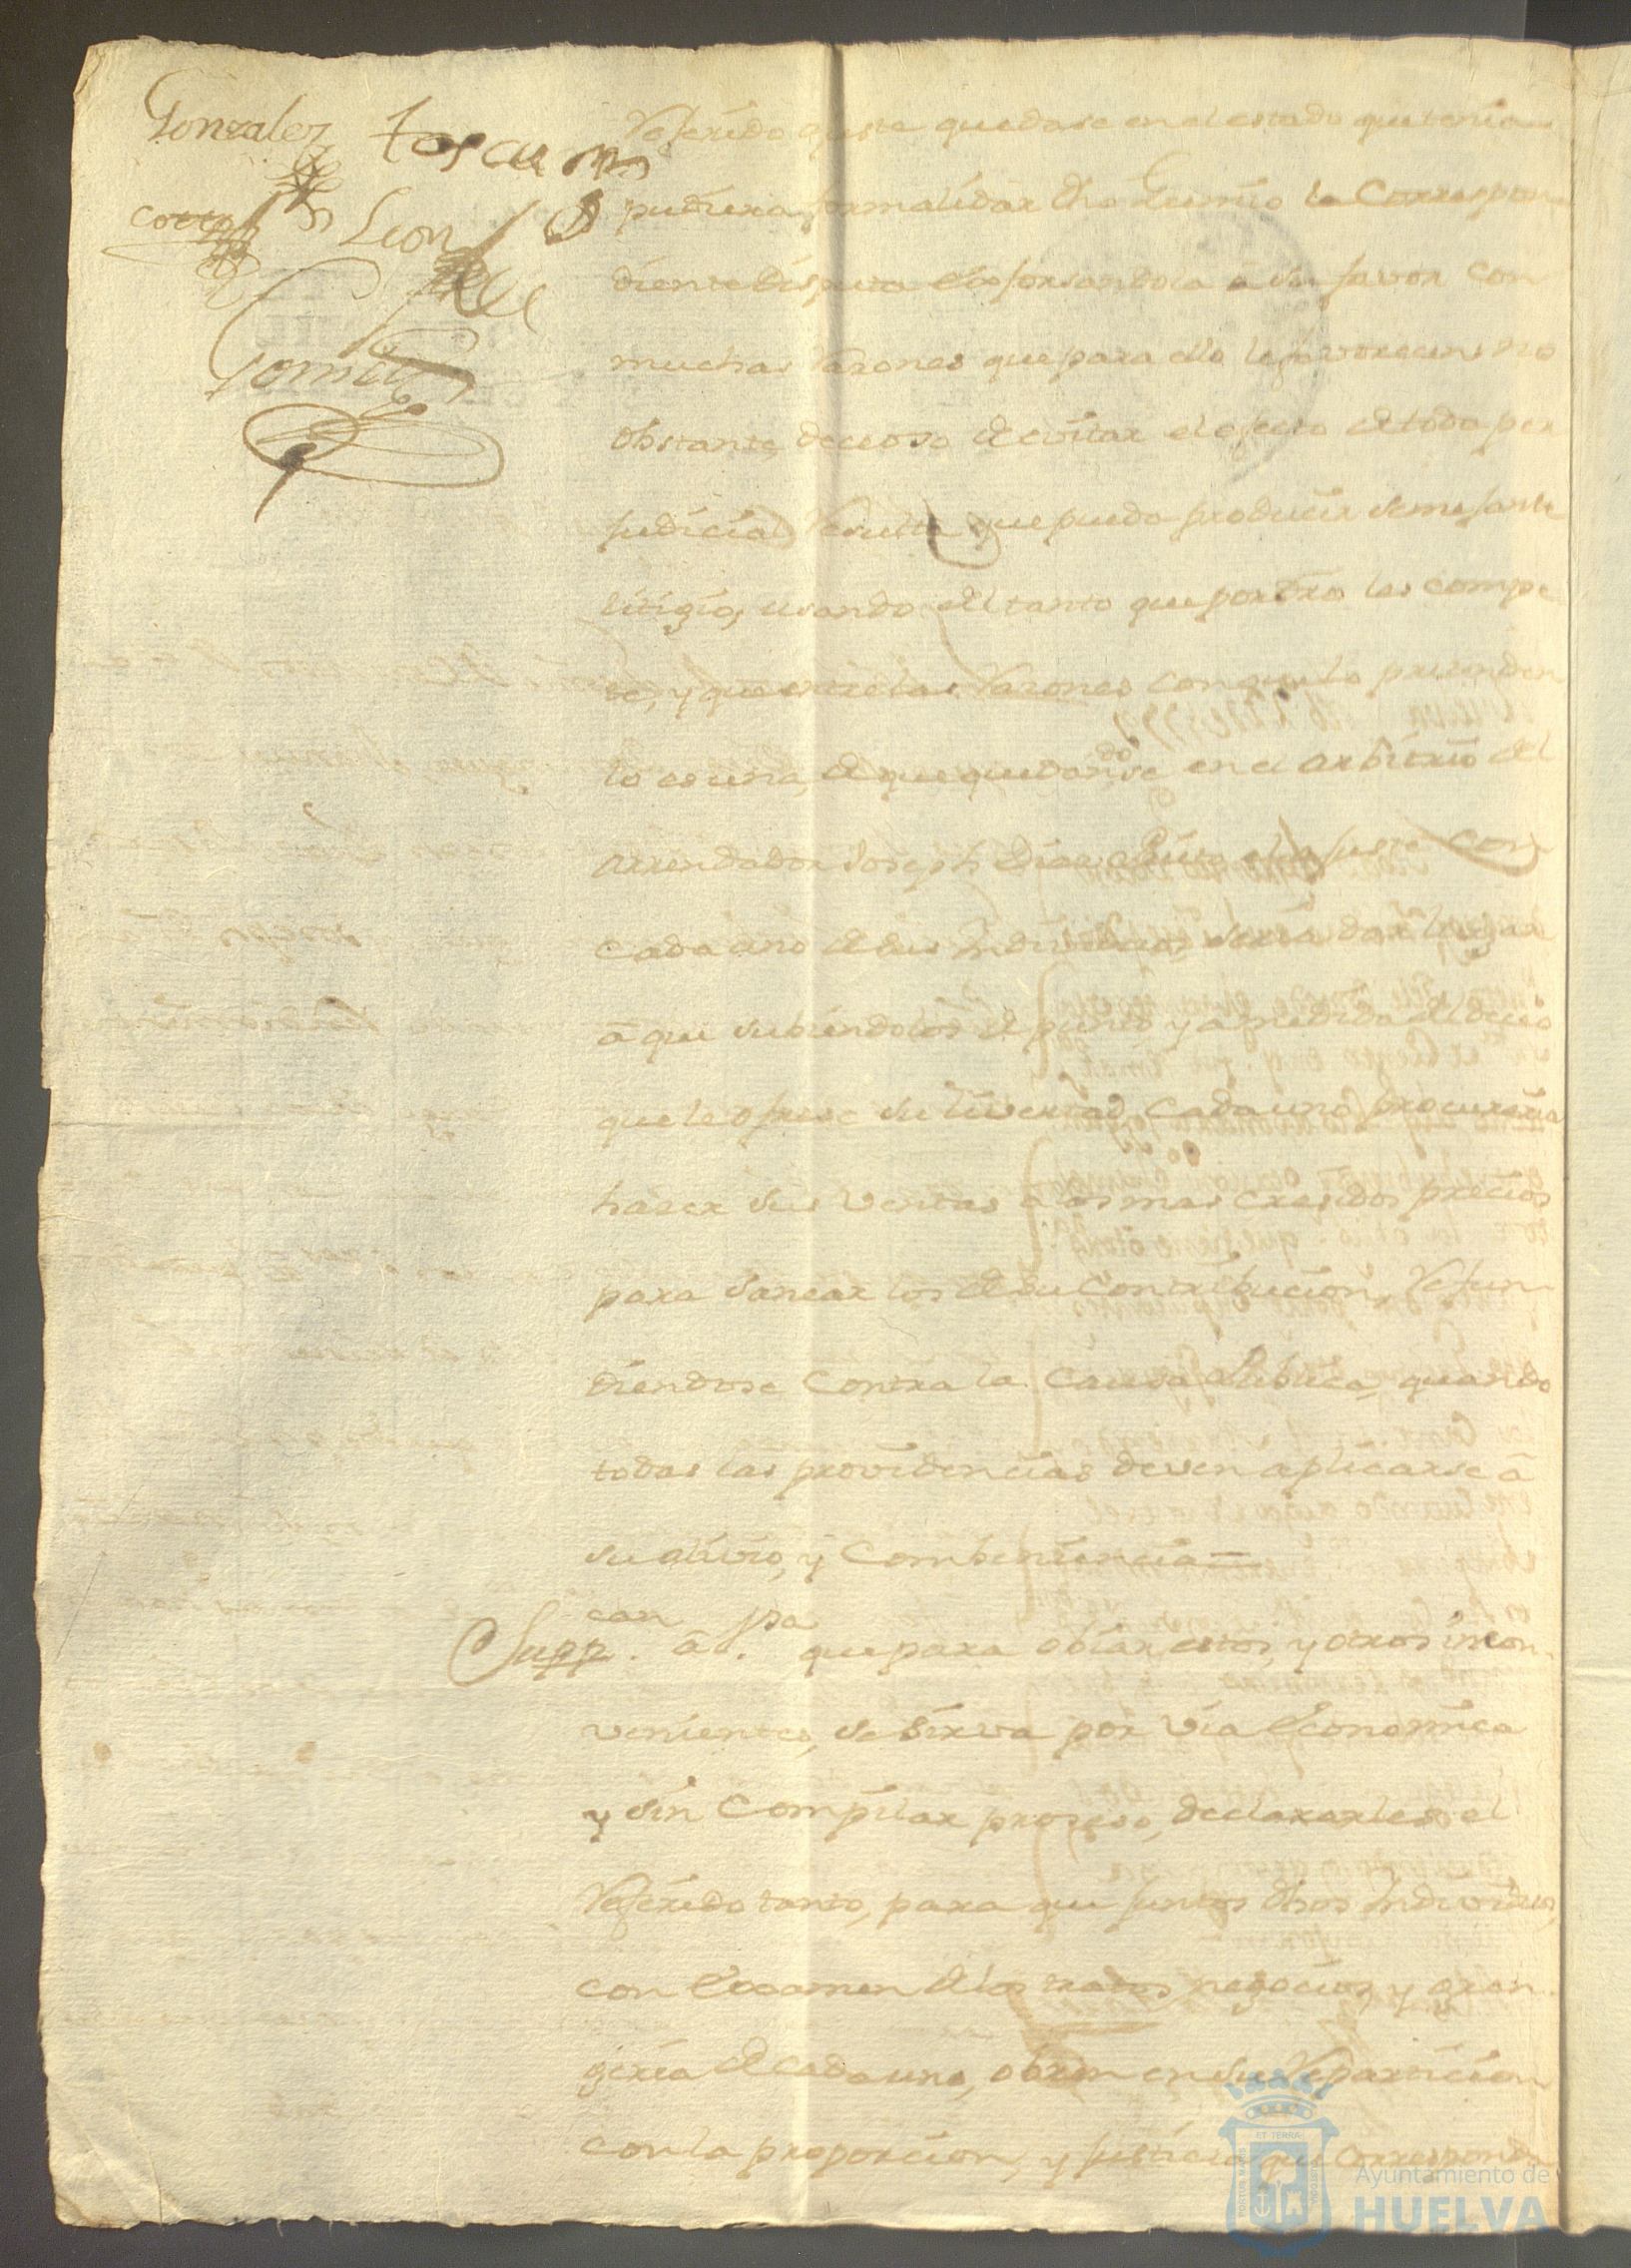 Gonzalez
toscano
Cotto
Leon
Gomez
Referido que se quedase en el estado que tenia
pudiera formalidar dho Gremio la Correspon
diente disputa esforsandola a su favor con
muchas razones que para ello le favorecen: no
obstante, deceoso de evitar el efecto de toda per
judicial resulta que pueda producir semejante
litigio, usando del tanto que por dro les compe
te, y que entre las Razones con que lo pretenden
lo es una, de que quedan
do
se en el arbitrio del
Arrendador Joseph Diaz el ajuste con
cada uno de sus Individuos, seria dar lugar
a que subiendolos de punto y a medida
que le ofrese su livertad, cada uno procuraria
haser sus ventas a los mas cresidos precios
para sanear los de su Contribucion, refun
diendose Contra la Causa Publica, quando
todas las providencias deven aplicarse a
su alivio, y Combeniencia =
can ssa
Supp. a . que para obiar estos, y otros incon
venientes, se sirva por via Economica
y sin Compilar proseso, declararles el
Referido tanto, para que juntos dhos Individuos,
con Examen de los tratos, negocios, y gran
geria de cada uno, obren en su Reparticion
con la proporcion, y justicia que corresponde
Ayuntamiento de
HUELVA